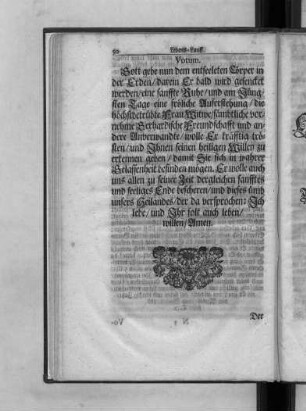 50 Lebens-Lauff.
Votum.
Gott gebe nun dem entseeleten Cörper in
der Erden/ darein Er bald wird gesencket
werden/ eine sanffte Ruhe/ und am Jüng-
sten Tage eine fröliche Aufferstehung/ die
höchstbetrübte Frau Witwe/ sämbtliche vor-
nehme Gerhardische Freundschafft und an-
dere Anverwandte/ wolle Er kräfftig trö-
sten/ und Ihnen seinen heiligen Willen zu
erkennen geben/ damit Sie sich in wahrer
Gelassenheit befinden mögen. Er wolle auch
uns allen zu seiner Zeit dergleichen sanfftes
und seeliges Ende bescheren/ und dieses umb
unsers Heilandes/ der da versprochen: Ich
lebe/ und Ihr solt auch leben/
willen/ Amen.
Der